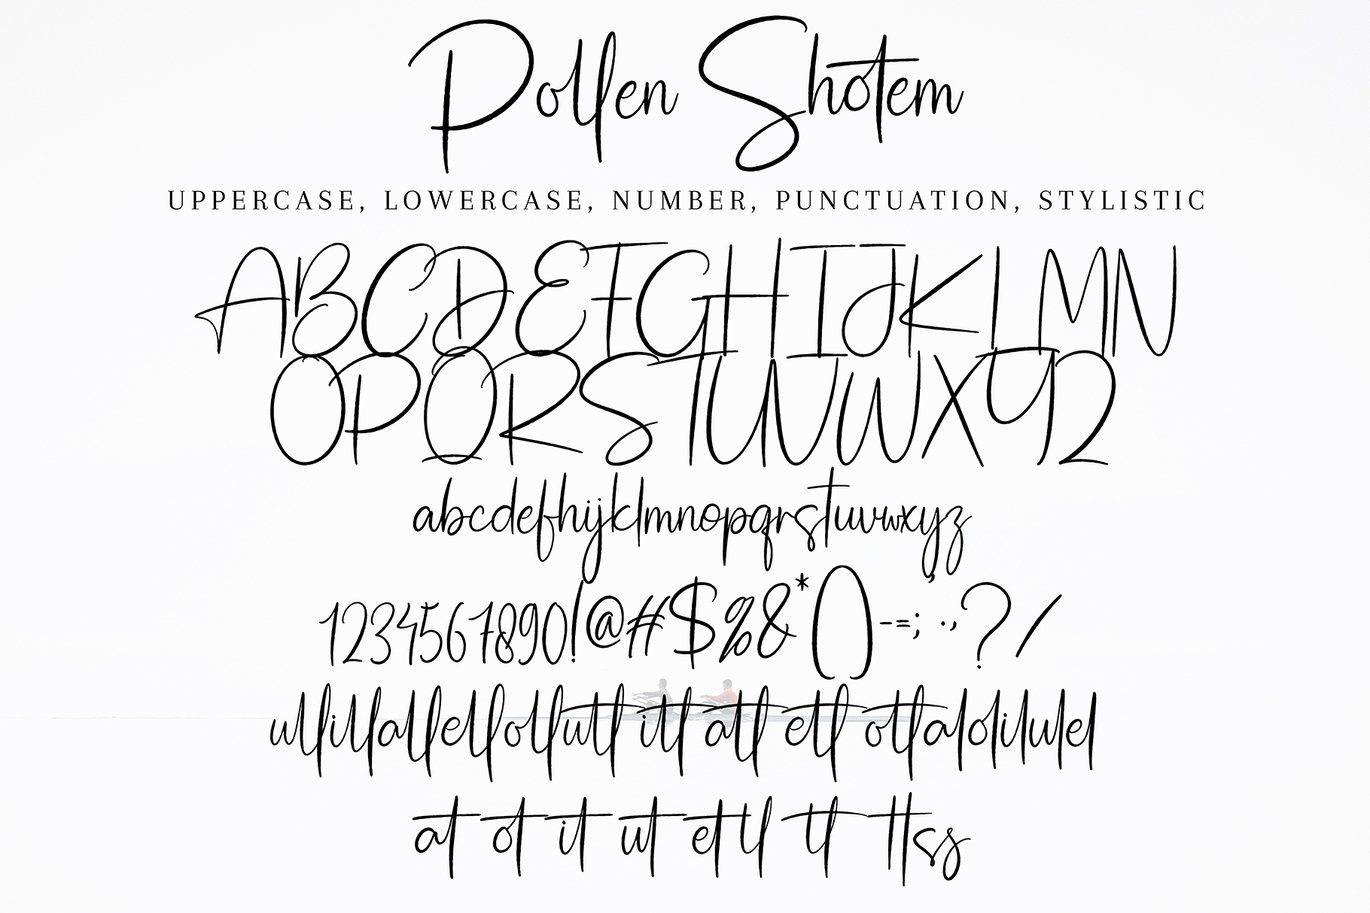 Pollen Shotem
UPPERCASE, LOWERCASE, NUMBER, PUNCTUATION, STYLISTIC
ABCDEFGHIJKLMN
OPQRSTUVWXYZ
abcdefhijklmnopqrstuvwxyz
1234567890!@#$%&*()-=;:.,?/
ull ill all ell oll utt itt att ett ott al ol il ul el
at ot it ut et tl tl tt ss